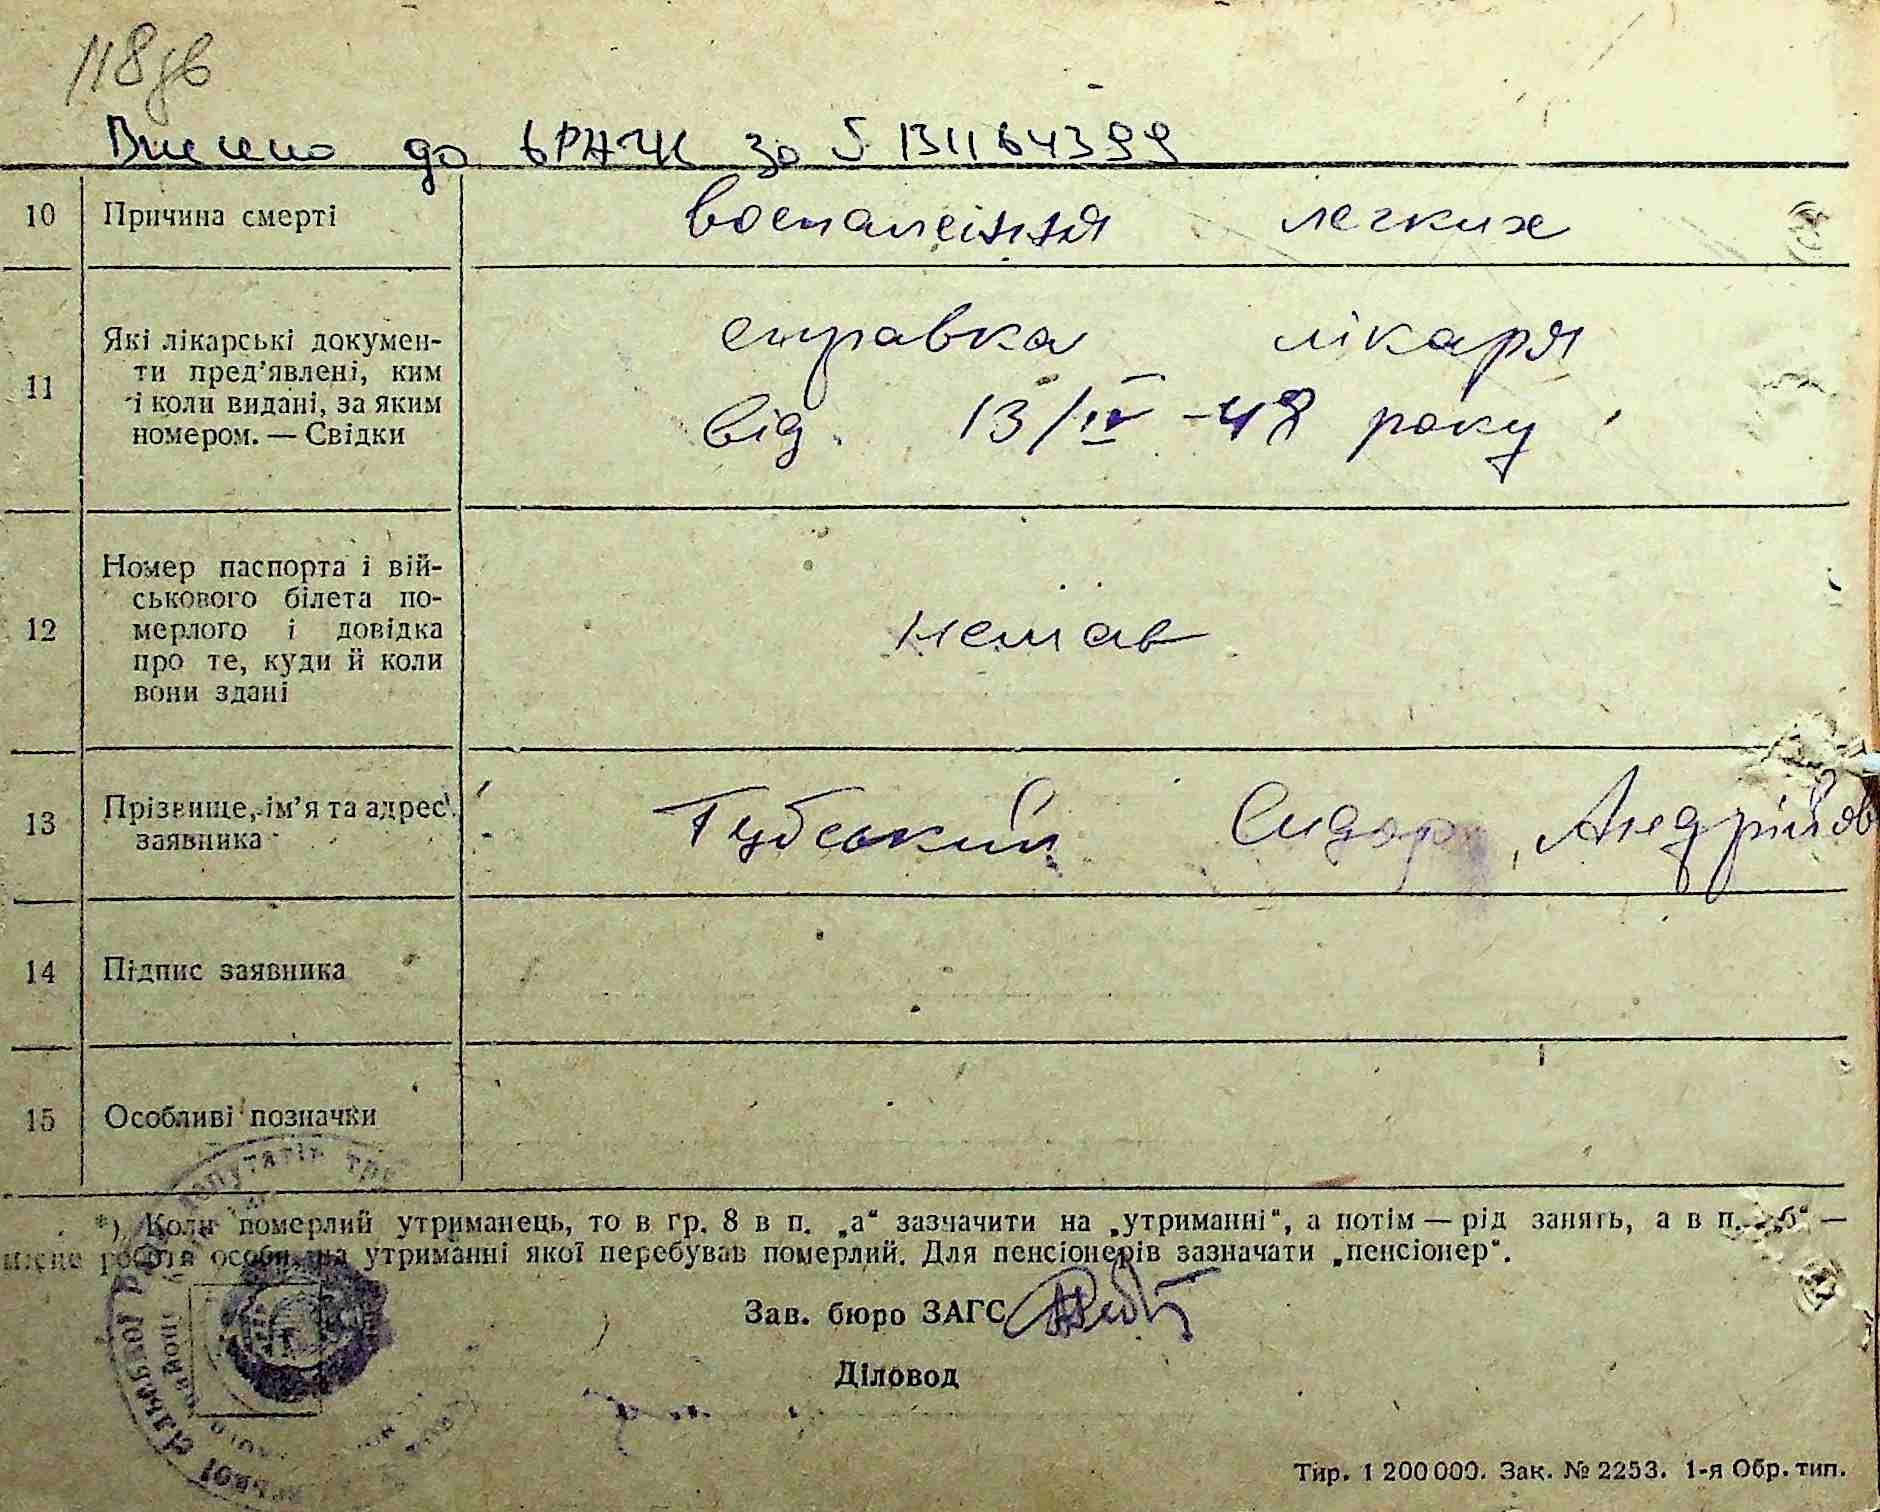 118зв
Внесено до
10 Причина смерті воспаленія легких
11 Які лікарські докумен-
ти пред'явлені, ким
і коли видані, за яким
номером. — Свідки
справка лікаря
від 13/IV -48 року
12 Номер паспорта і вій-
ськового білета по-
мерлого і довідка
про те, куди й коли
вони здані
немає
13 Прізвище, ім'я та адрес
заявника
Губський Сидор Андрійов
14 Підпис заявника
15 Особливі позначки
*) Коли померлий утриманець, то в гр. 8 в п. „а“ зазначити на „утриманні“, а потім — рід занять, а в п. „б“ —
місце роботи особи, на утриманні якої перебував померлий. Для пенсіонерів зазначати „пенсіонер“.
Зав. бюро ЗАГС
Діловод
Тир. 1 200 000. Зак. № 2253. 1-я Обр. тип.